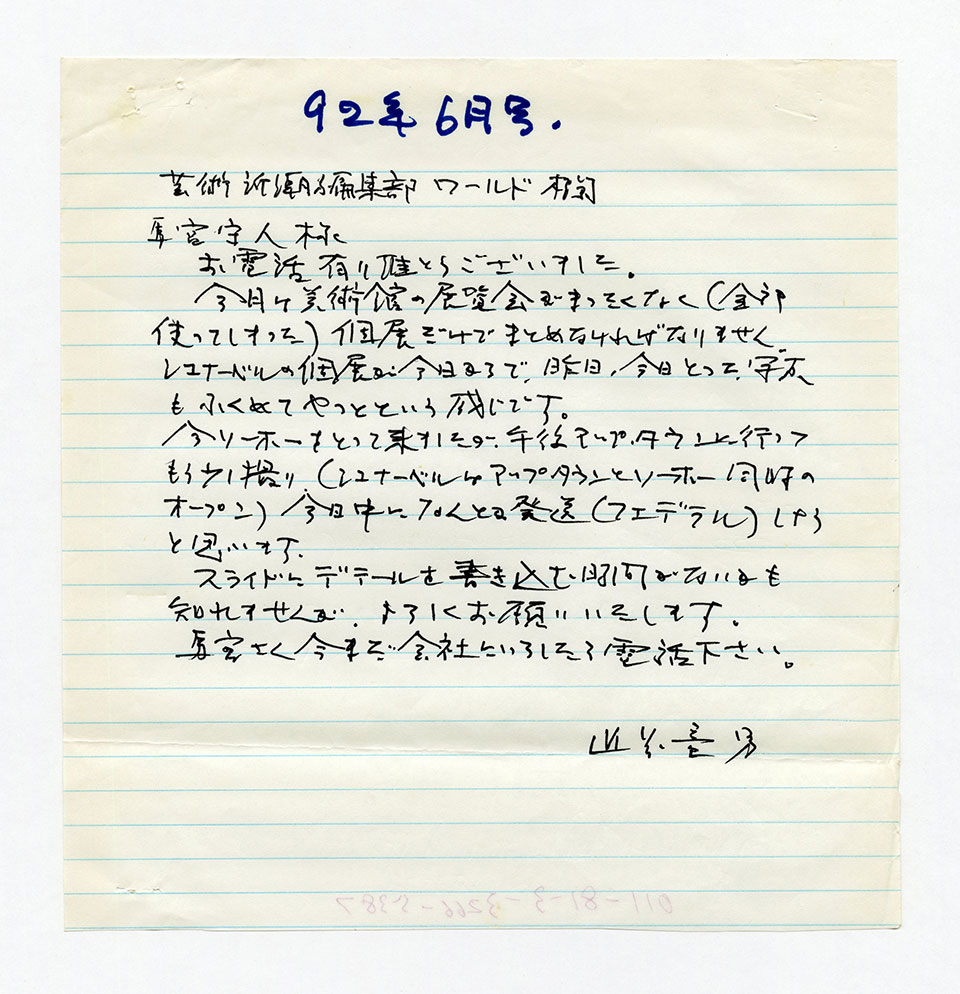 92年6月号.
芸術新潮編集部 ワールド欄
馬宮守人様
お電話有り難とうございました。
今月は美術館の展覧会がまったくなく(全部
使ってしまった)個展だけでまとめなければなりません
シュナーベルの個展が今日からで、昨日、今日とった写真
もふくめてやっとという感じです。
今ソーホーをとって来ましたが、午後アップ・タウンに行って
もう少し撮り、(シュナーベルはアップタウンとソーホー同時の
オープン)今日中になんとか発送(フェデラル)しよう
と思います。
スライドにデテールを書き込む時間がないかも
知れませんが、よろしくお願いいたします。
馬宮さん今まだ会社にいらしたら電話下さい。
男
011-81-3-3266-5387